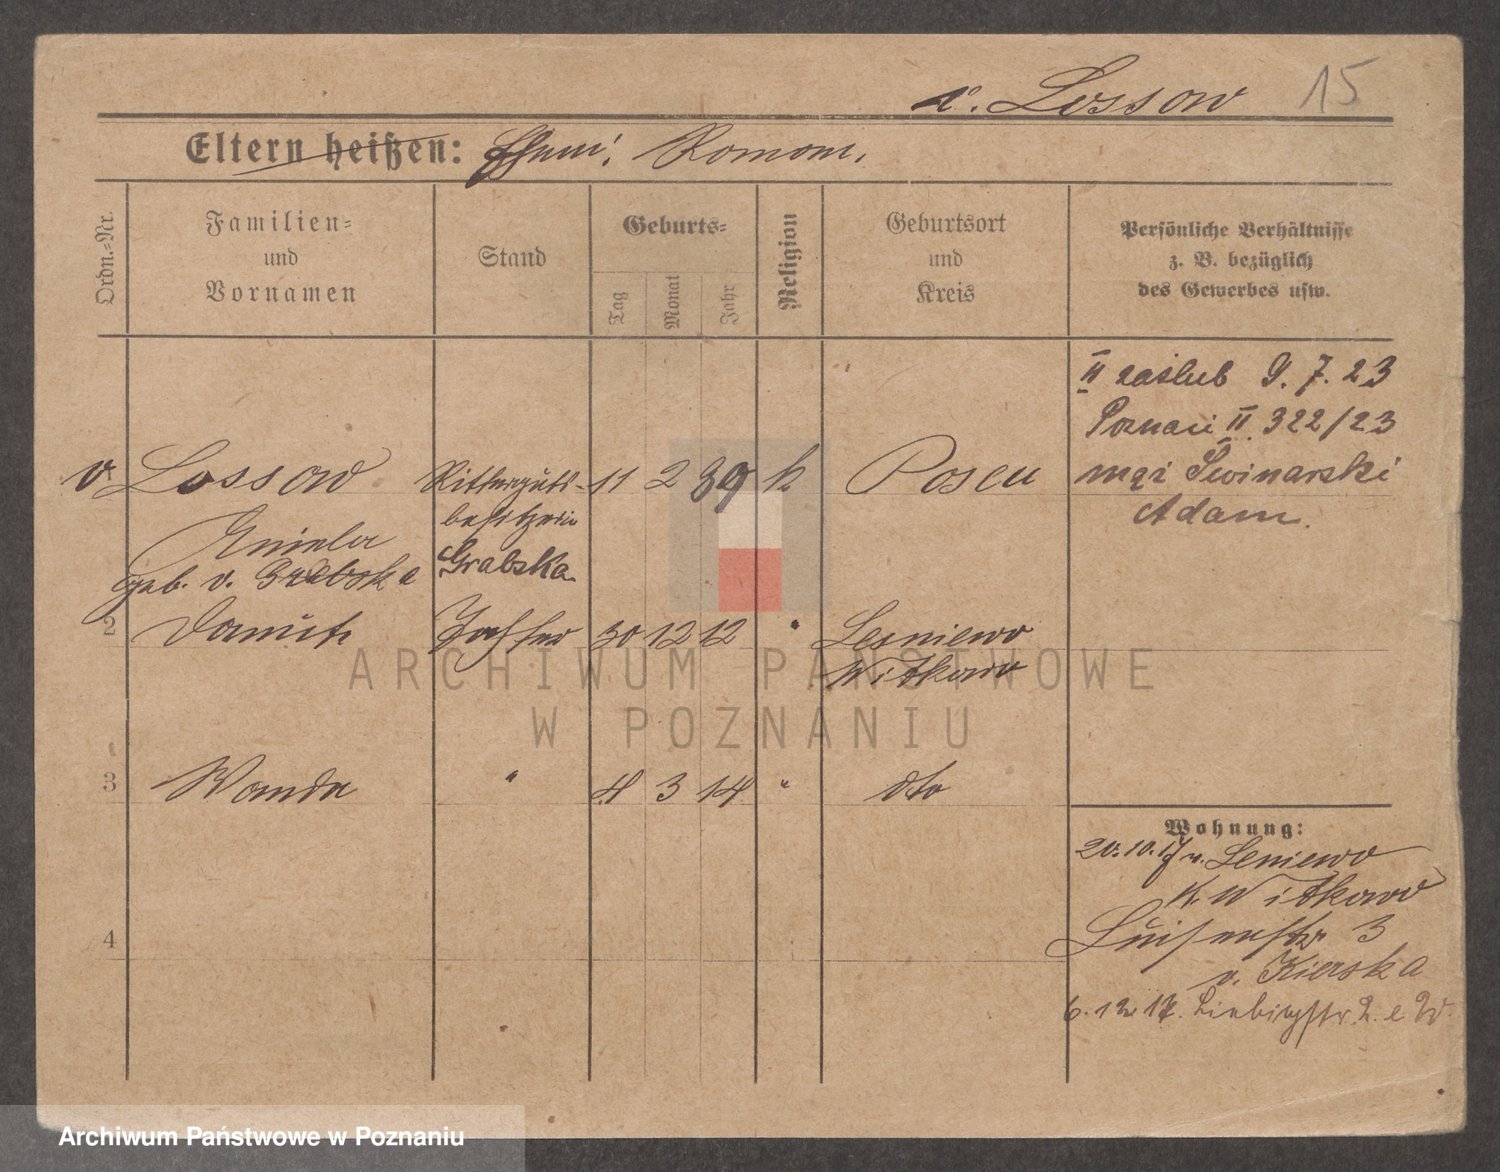 v. Lossow 15
Eltern heißen: Ehem. Roman.
Ordn.-Nr.
Familien-
und
Vornamen
Stand
Geburts-
Tag
Monat
Jahr
Religion
Geburtsort
und
Kreis
Persönliche Verhältnisse
z. B. bezüglich
des Gewerbes usw.
II zaślub 9. 7. 23
Poznań II 322/23
mąż Świnarski
Adam.
v. Lossow Ritterguts- 11 2 89 k Posen
besitzerin
Aniela
geb. v. Grabska Grabska
2 Danuta Tochter 30 12 12 " Lesniewo
Witkowo
3 Wanda " 4 3 14 " dto
Wohnung:
20.10.17 v. Leniewo
K. Witkowo
Luisenstr. 3
v. Kierska
4
6.12.17. Liebigstr. 2. e W.
ARCHIWUM PAŃSTWOWE
W POZNANIU
Archiwum Państwowe w Poznaniu